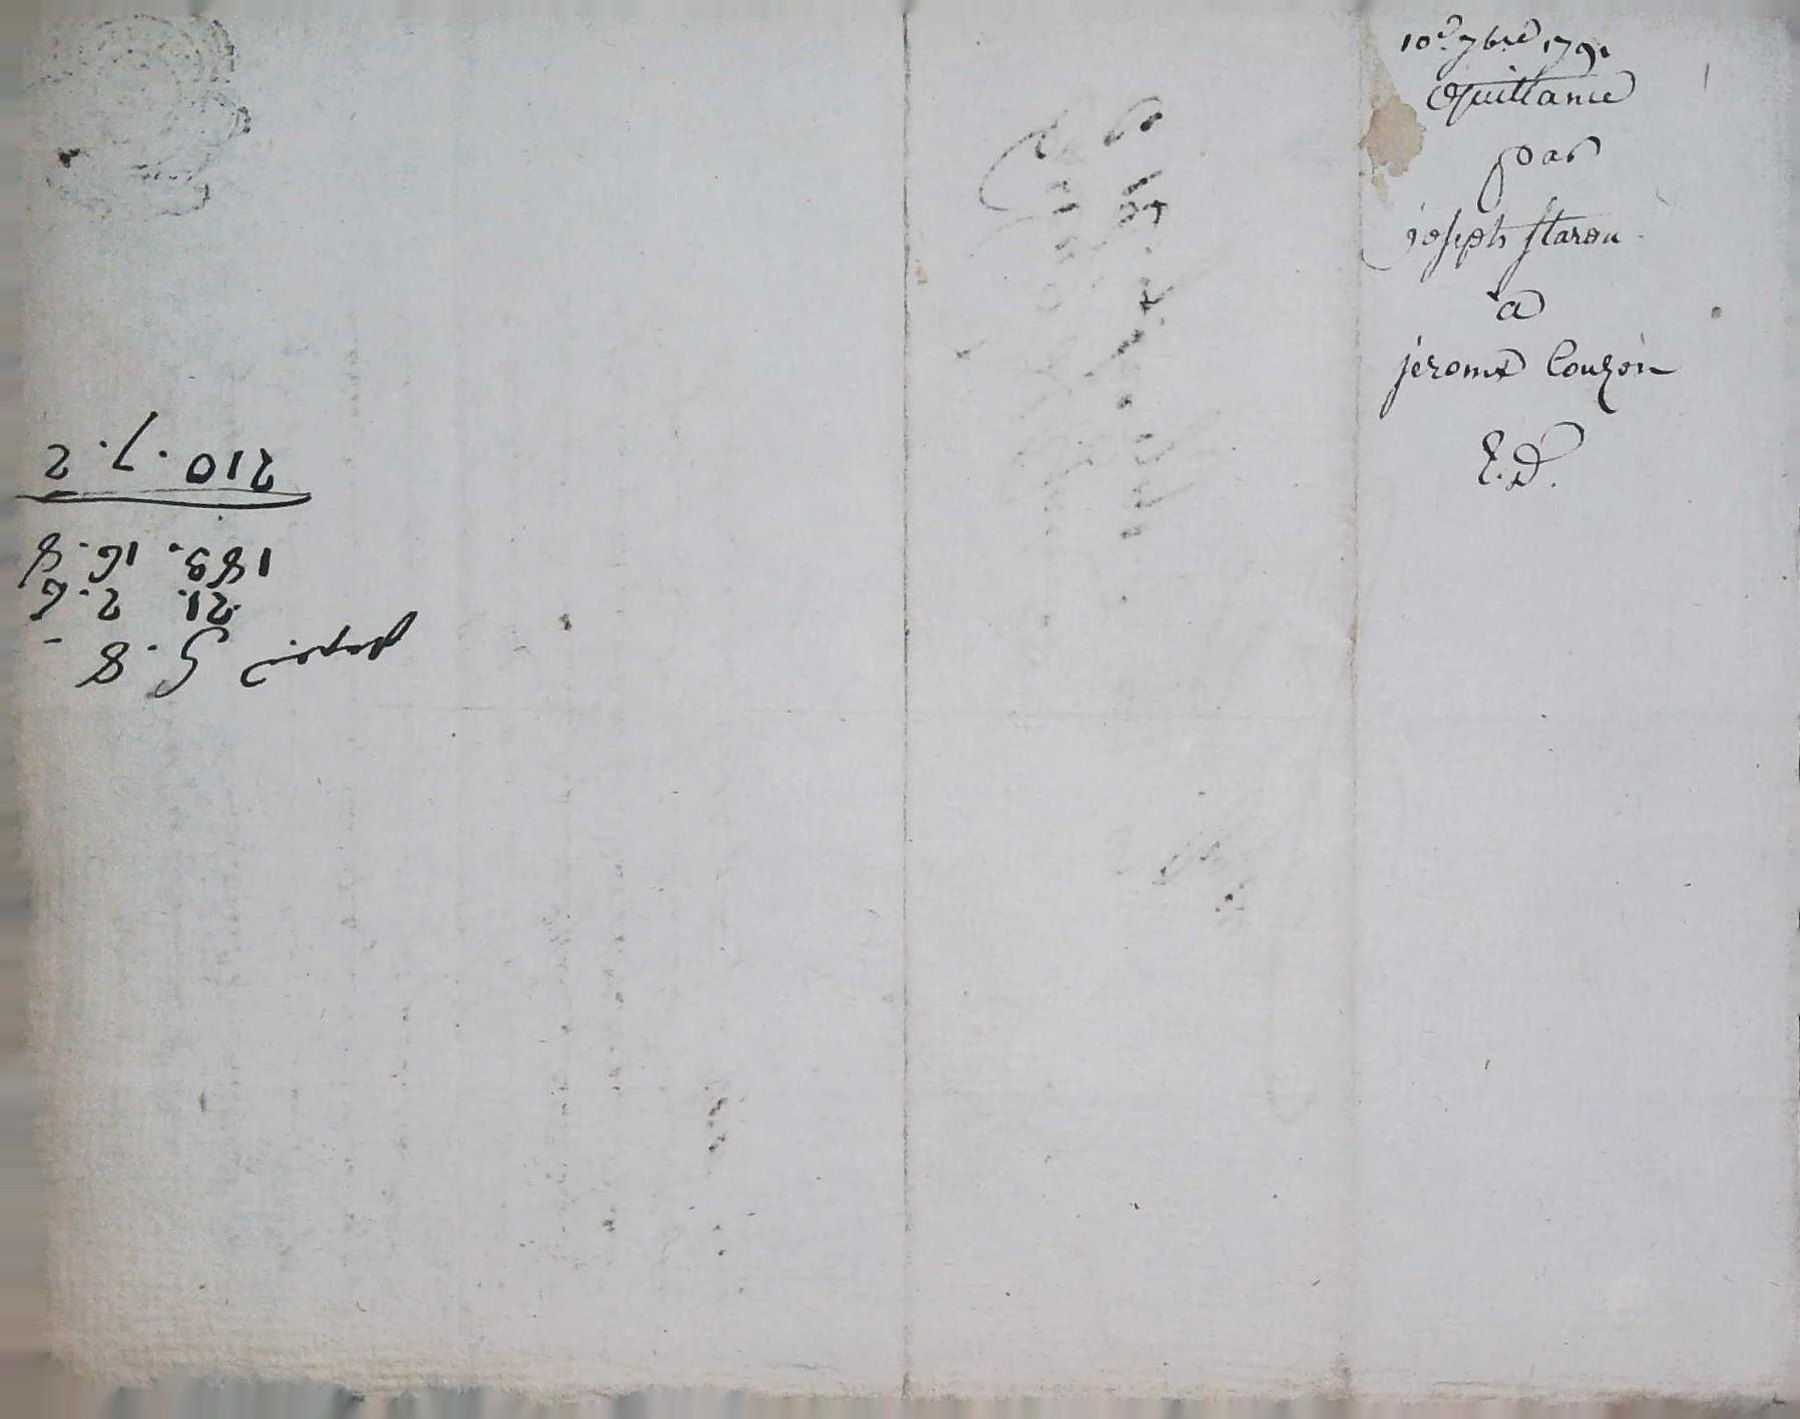 10e 7bre 1791
Quittance
par
joseph staron
a
jerome Couzon
E.D.
5. 8. -
21. 2. 6
183. 16. 8
210. 7. 2